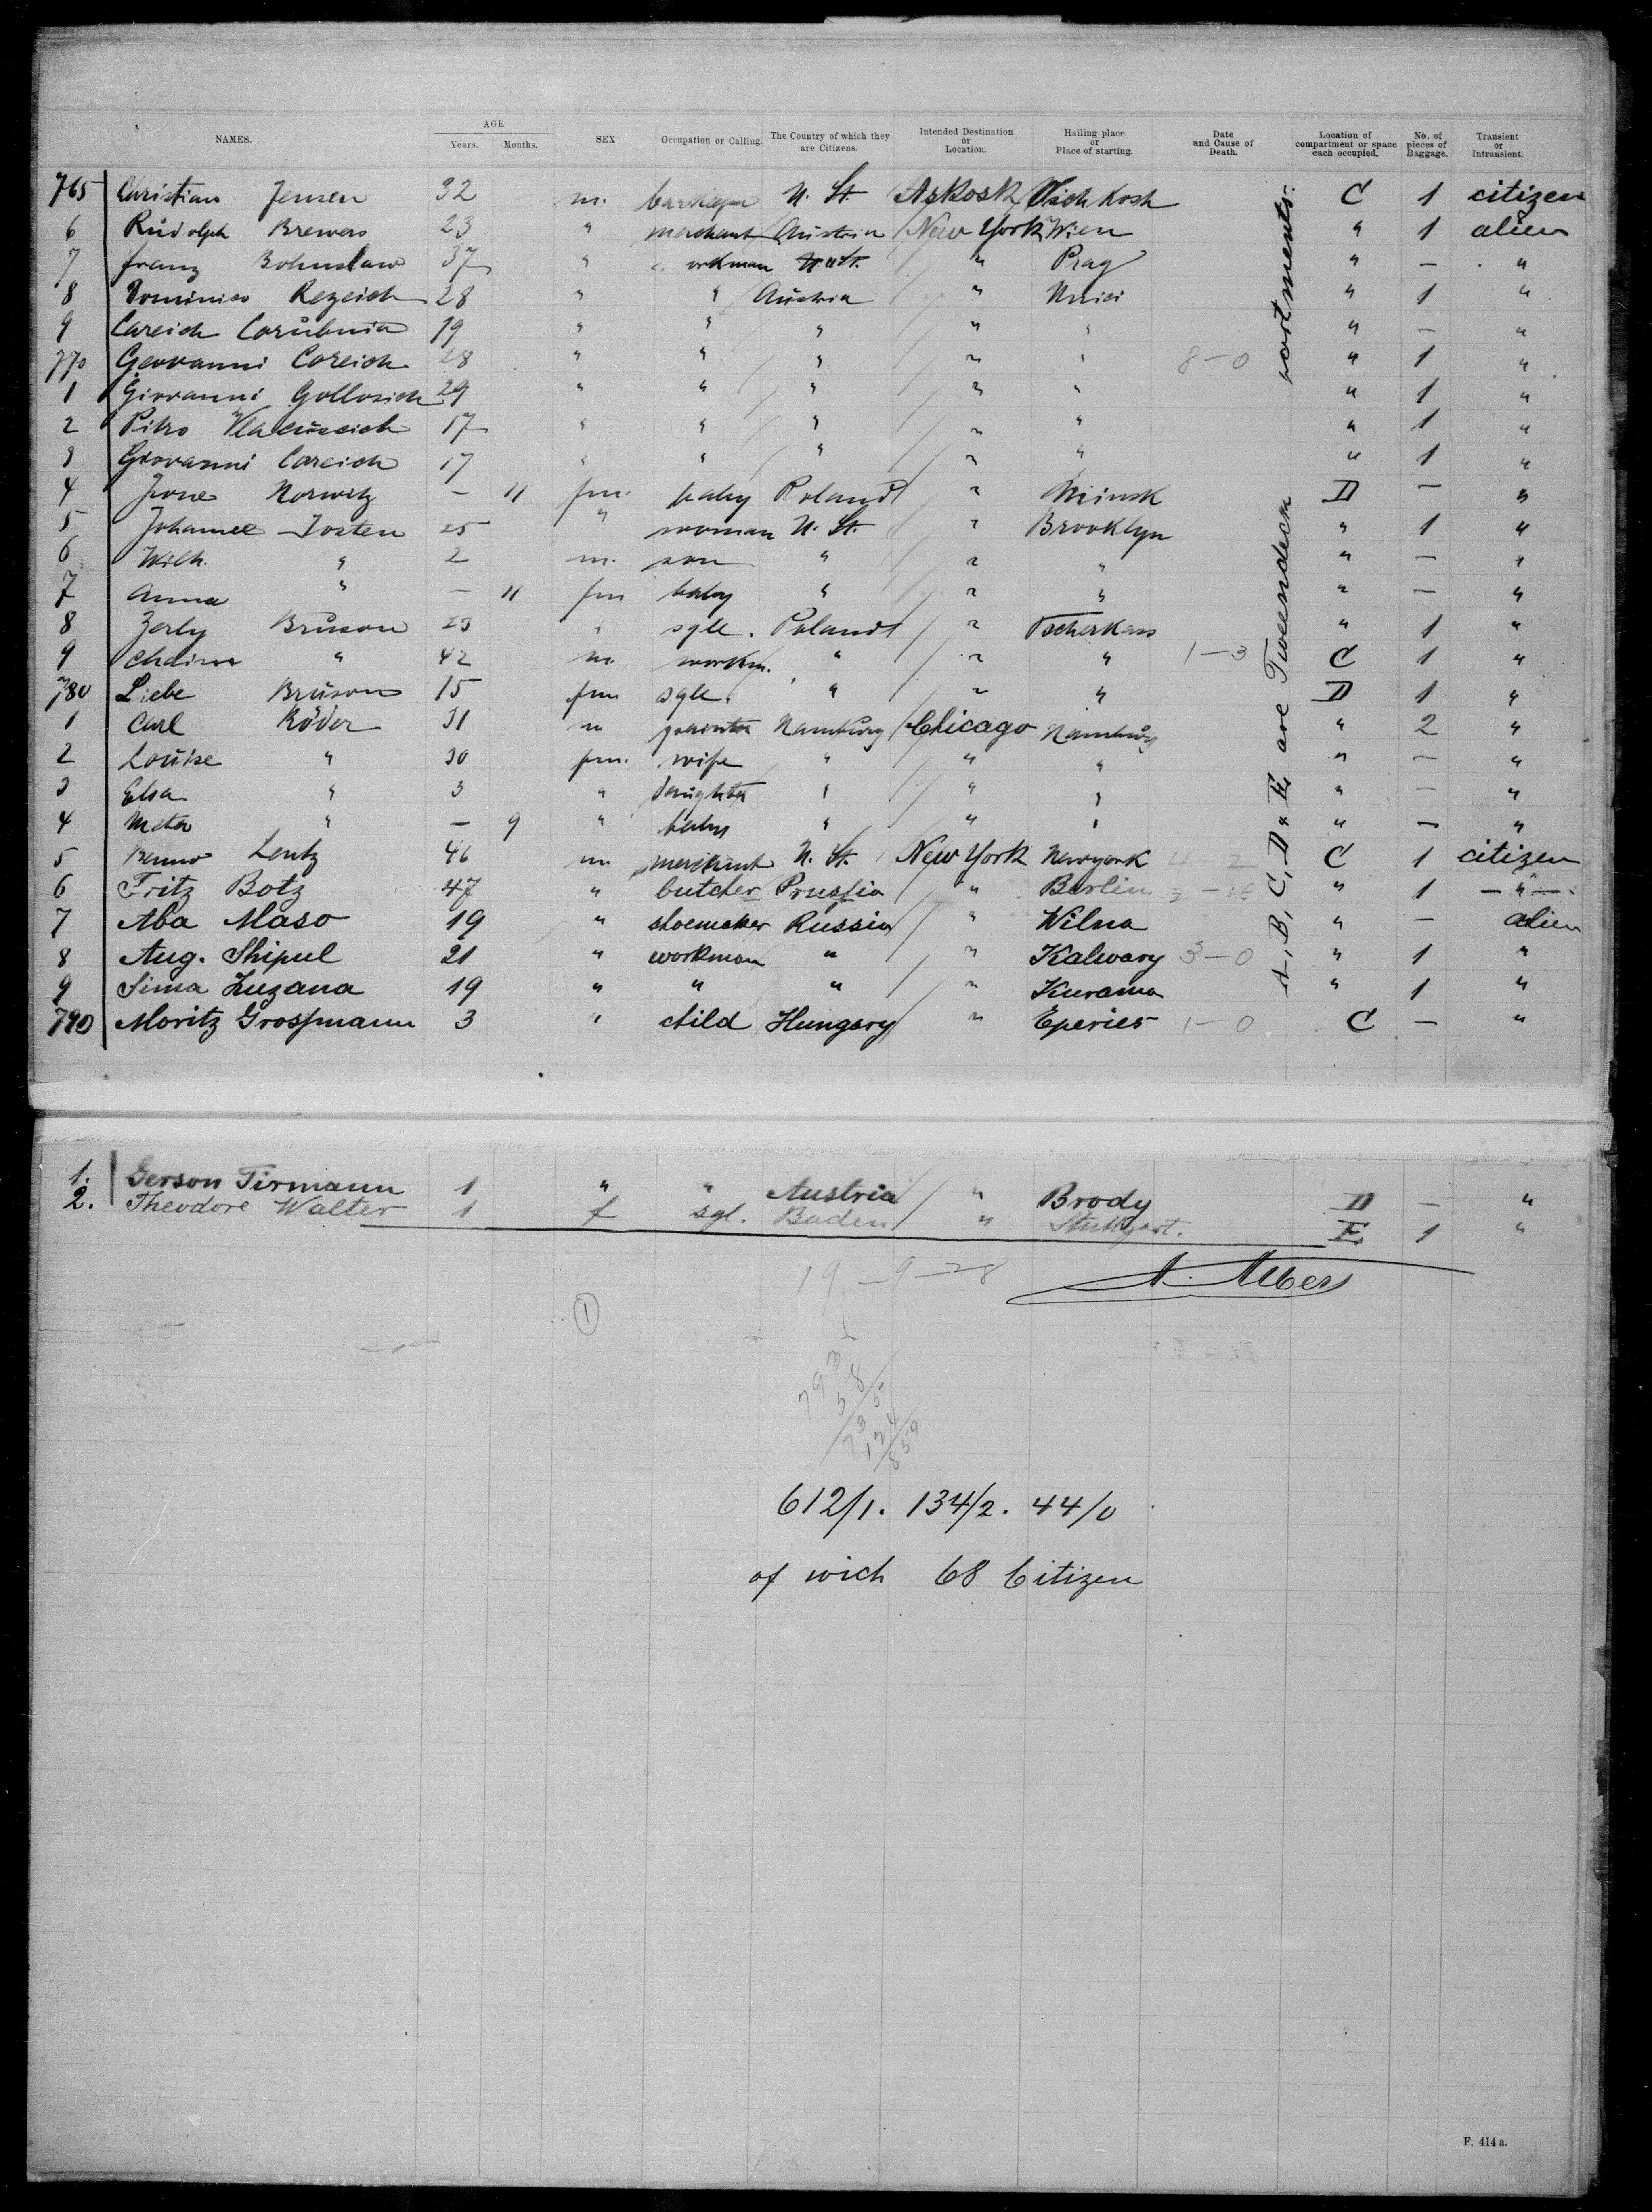 AGE
NAMES. Years. Months. SEX Occupation or Calling. The Country of which they are Citizens. Intended Destination or Location. Hailing place or Place of starting. Date and Cause of Death. Location of compartment or space each occupied. No. of pieces of Baggage. Transient or Intransient.
765 Christian Jensen 32 m. barkeper U. St. Askosk C 1 citizen
6 Rudolph Brewers 23 " merchant Austria New York Wien " 1 alien
7 Franz Bohuslaw 37 " workman U. St. " Prag " — "
8 Dominico Rezeich 28 " " Austria " " 1 "
9 Careich 19 " " " " " " — "
770 Geovanni Coreich 28 " " " " " 8-0 " 1 "
1 Giovanni Gollosich 29 " " " " " " 1 "
2 Pitro 17 " " " " " " 1 "
3 Giovanni Coreich 17 " " " " " " 1 "
4 Norwitz — 11 fm. baby Poland " Minsk D — "
5 Johanne Josten 25 " woman U. St. " Brooklyn " 1 "
6 Wilh. " 2 m. son " " " " — "
7 Anna " — 11 fm baby " " " " — "
8 Zerly Bruson 23 " sgle. Poland " Tscherkass " 1 "
9 Chaim " 42 m. workm. " " " 1-3 C 1 "
780 Liebe Bruson 15 fm sgle. " " " D 1 "
1 Carl Röder 31 m painter Hamburg Chicago Hamburg " 2 "
2 Louise " 30 fm. wife " " " " — "
3 Elsa " 3 " daughter " " " " — "
4 Meta " — 9 " baby " " " " — "
5 Benno Lentz 46 m merchant U. St. New York Newyork 4-2 C 1 citizen
6 Fritz Botz 47 " butcher Prussia " Berlin " 1 — " —
7 Aba Maso 19 " shoemaker Russia " Wilna " — alien
8 Aug. Shipul 21 " workman " " Kalwary 3-0 " 1 "
9 Sima Zuzana 19 " " " " Kurama " 1 "
790 Moritz Grossmann 3 " child Hungary " Eperies 1-0 C — "
A, B, C, D " E are Tweendeck
1. Gerson Tirmann 1 " " Austria " Brody D — "
2. Theodore Walter 1 f sgl. Baden " Stuttgart. E 1 "
19-9-28 A. Albers
1
793
58
735
124
859
612/1. 134/2. 44/0
of wich 68 Citizen
F. 414 a.